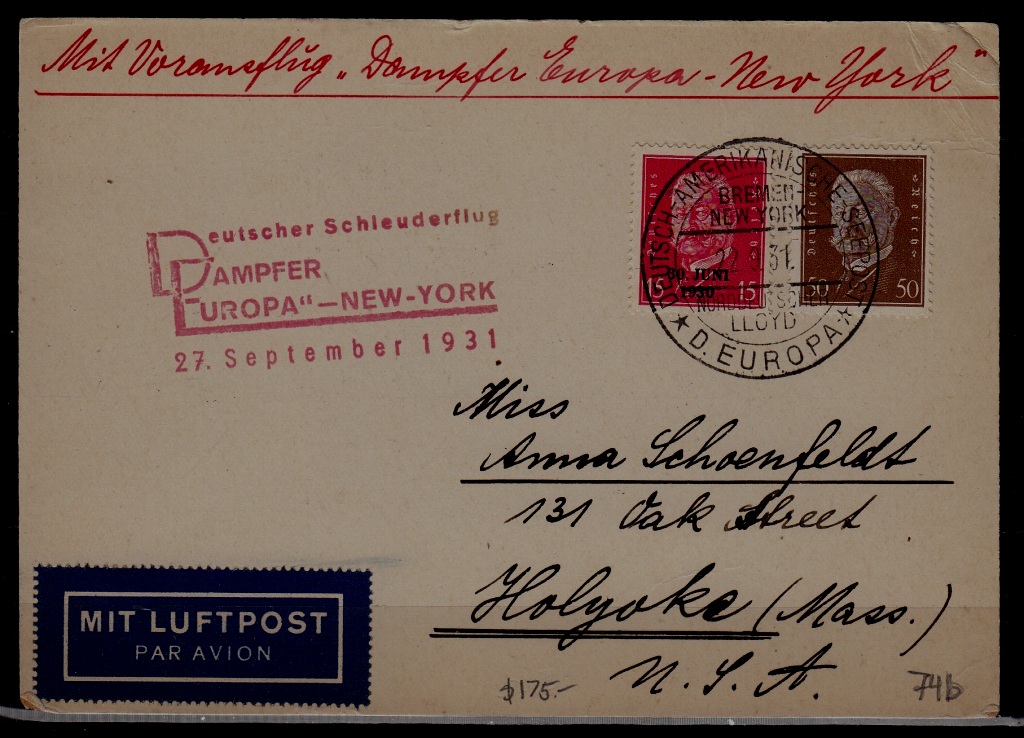 Mit Vorausflug „Dampfer Europa - New York"
Deutscher Schleuderflug
DAMPFER
EUROPA“—NEW-YORK
27. September 1931
DEUTSCH-AMERIKANISCHE SEEPOST
BREMEN-
NEW YORK
31.
NORDDEUTSCHER
LLOYD
★ D. EUROPA ★
Deutsches Reich
30. JUNI
1930
15 15
Deutsches Reich
50 50
Miss
Anna Schoenfeldt
131 Oak Street
Holyoke (Mass.)
U. S. A.
MIT LUFTPOST
PAR AVION
$175.-
74b